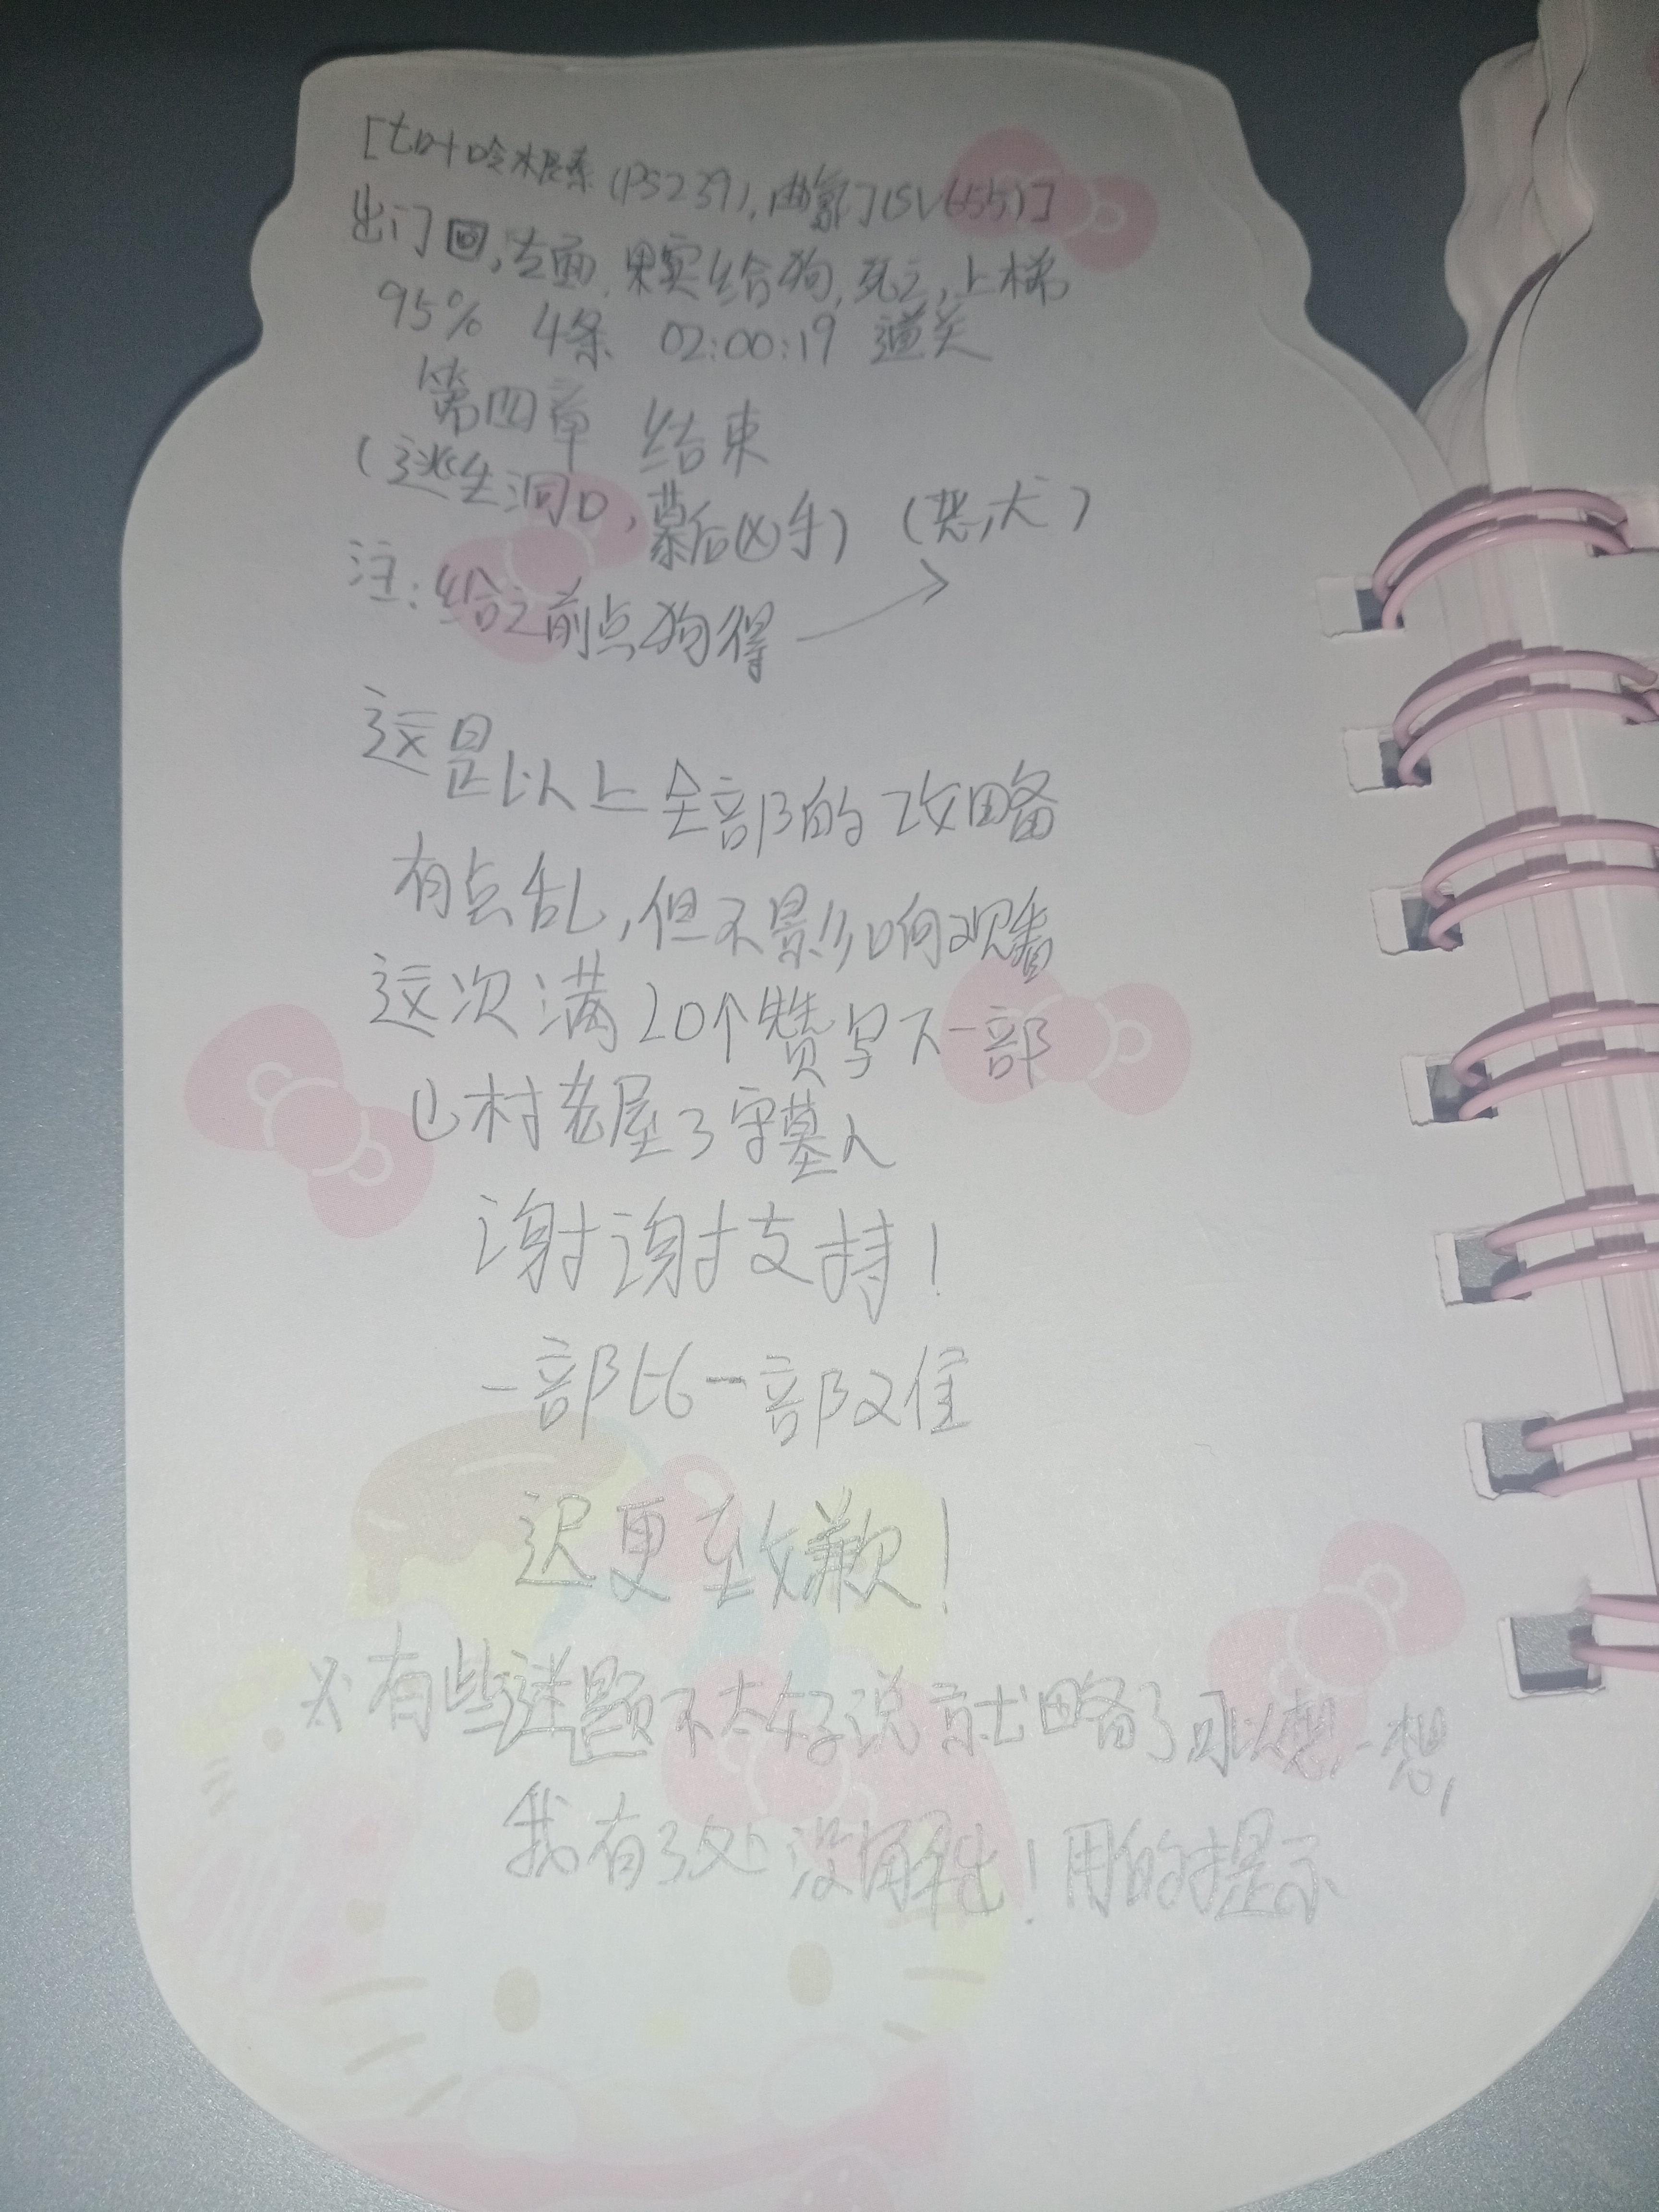 [七叶冷水尼素(PS239),曲氯丁(SV655)]
出门回,左面,果实给狗,死之,上梯
95% 4条 02:00:19 通关
第四章 结束
(逃生洞口,幕后凶手) (恶犬)
注:给之前点狗得
这是以上全部的攻略
有点乱,但不影响观看
这次满20个赞写下一部
山村老屋3守墓人
谢谢支持!
一部比一部难
迟更致歉!
有些谜题不太好说就略了可以想一想,
我有3处没 !用的提示